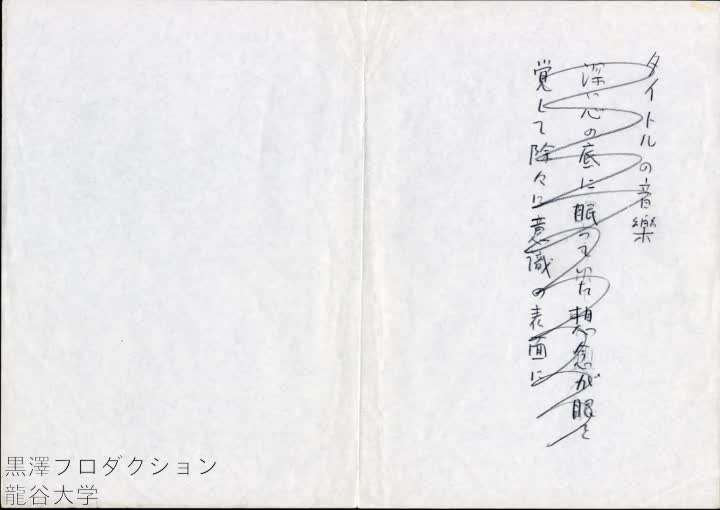 タイトルの音樂
深い心の底に眠って居た想念が眼を
覚して除々に意識の表面に
黒澤プロダクション
龍谷大学